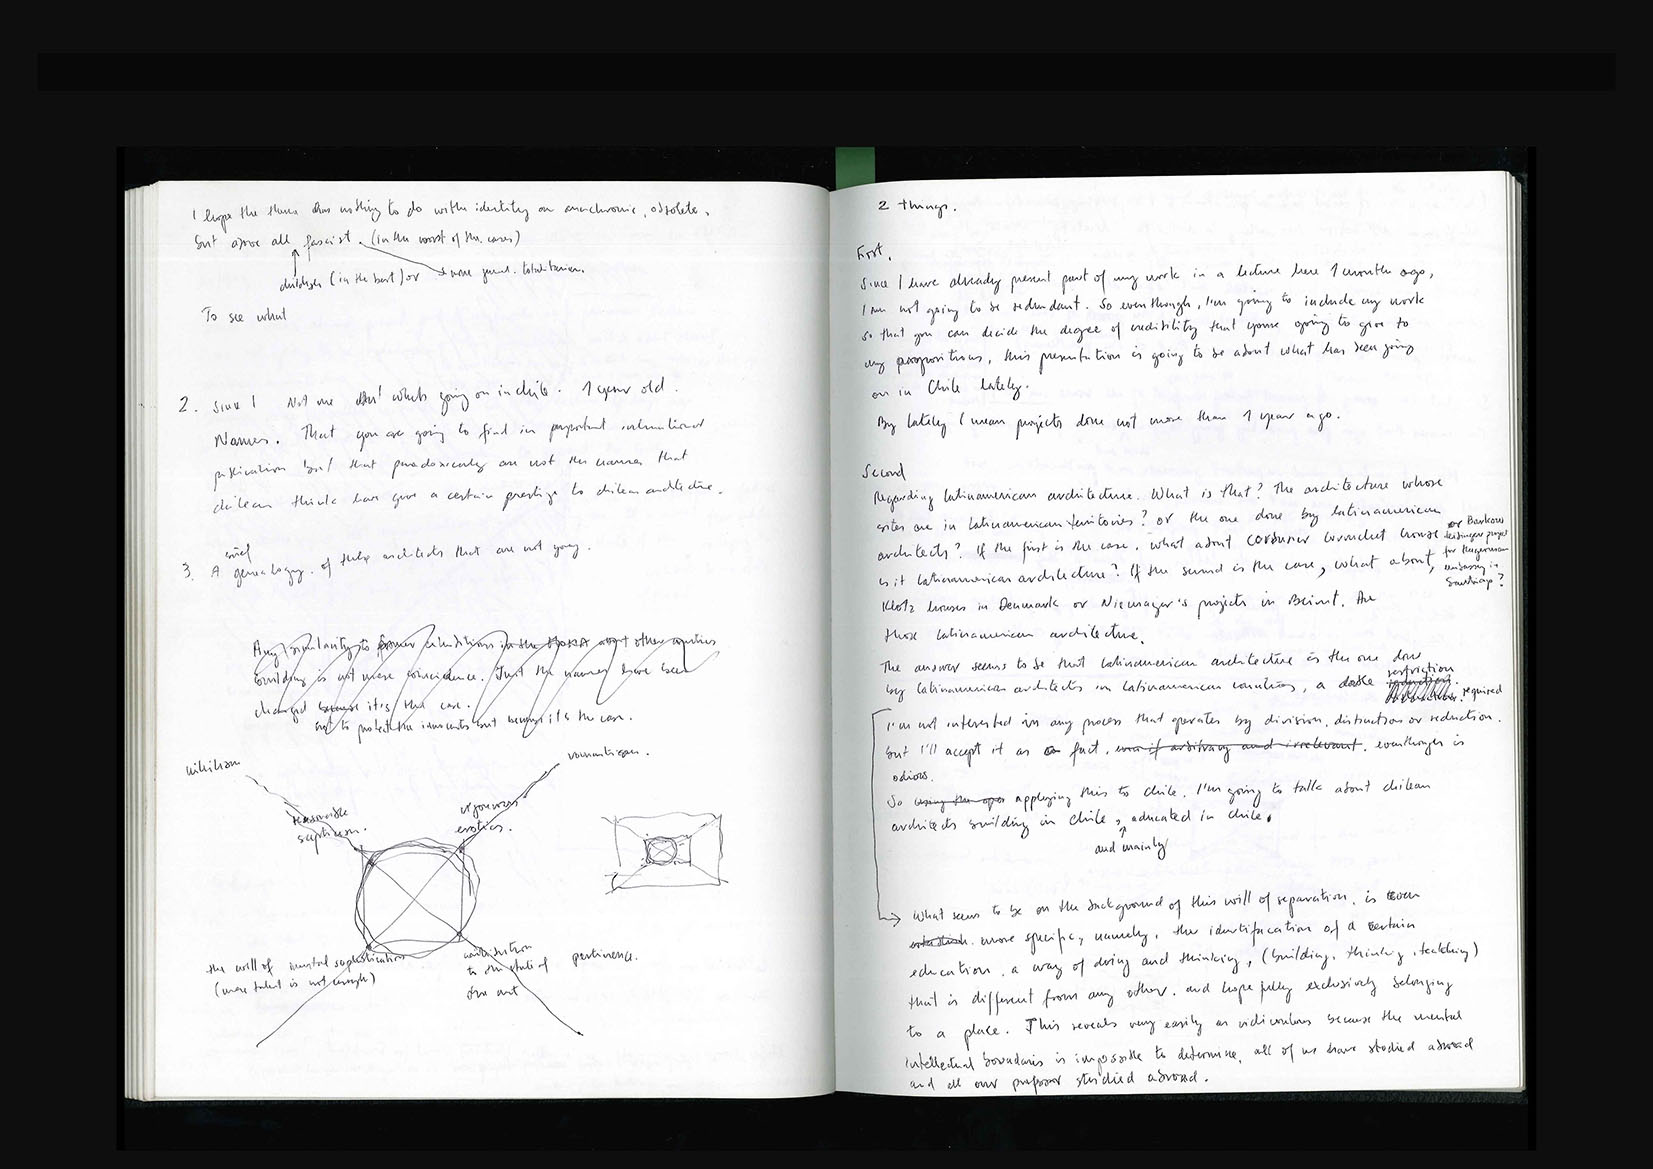 I hope the theme has nothing to do with identity an anachronic, obsolete,
but above all fascist. (in the worst of the cases)
childish (in the best) or & more general. totalitarian.
To see what
2. Since I Not me but whats going on in chile. 1 year old.
Names. That you are going to find in important international
publications but that paradoxically are not the names that
chilean think have give a certain prestige to chilean architecture.
brief
3. A genealogy. of three architects that are not young.
Any similarity to former exhibitions in the MoMA about other countries
building is not mere coincidence. Just the names have been
changed because it's the case.
not to protect the innocents but because it's the case.
nihilism
romanticism.
reasonable
scepticism.
vigourous
erotics.
the will of mental sophistication
(mere talent is not enough)
contribution
to the state of
the art
pertinence.
2 things.
First.
Since I have already present part of my work in a lecture here 1 month ago,
I am not going to be redundant. So eventhough, I'm going to include my work
so that you can decide the degree of credibility that you're going to give to
my propositions, this presentation is going to be about what has been going
on in Chile lately.
By lately I mean projects done not more than 1 year ago.
Second
Regarding latinamerican architecture. What is that? The architecture whose
sites are in latinamerican territories? or the one done by latinamerican
architects? If the first is the case, what about corbusier Currutchet house
or Barkow
Leibinger project
for the german
embassy in
Santiago?
is it latinamerican architecture? If the second is the case, what about,
Klotz houses in Denmark or Niemayer's projects in Beirut. Are
those latinamerican architecture.
The answer seems to be that latinamerican architecture is the one done
by latinamerican architects in latinamerican countries, a double restriction
required
I'm not interested in any process that operates by division, distinction or reduction.
but I'll accept it as a fact, even if arbitrary and irrelevant. eventhough is
odious.
So using the applying this to chile. I'm going to talk about chilean
architects building in chile, educated in chile.
and mainly
What seems to be on the background of this will of separation, is even
more specific, namely, the identification of a certain
education, a way of doing and thinking, (building, thinking, teatching)
that is different from any other. and hopefully exclusively belonging
to a place. This reveals very easily as ridiculous because the mental
intellectual boundaries is impossible to determine, all of us have studied abroad
and all our professor studied abroad.